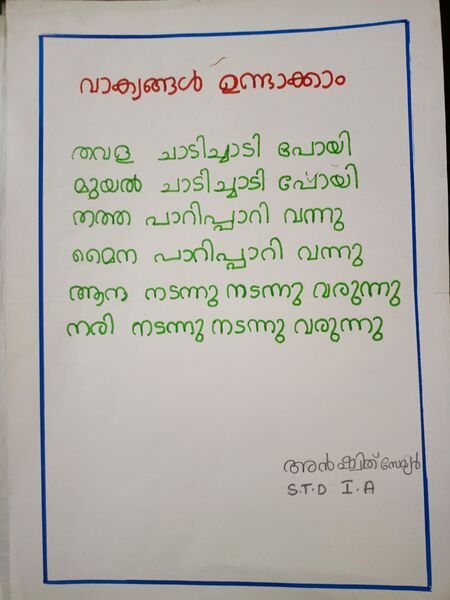 വാക്യങ്ങൾ ഉണ്ടാക്കാം
തവള ചാടിച്ചാടി പോയി
മുയൽ ചാടിച്ചാടി പ്പോയി
തത്ത പാറിപ്പാറി വന്നു
മൈന പാറിപ്പാറി വന്നു
ആന നടന്നു നടന്നു വരുന്നു
നരി നടന്നു നടന്നു വരുന്നു
S.T.D I.A